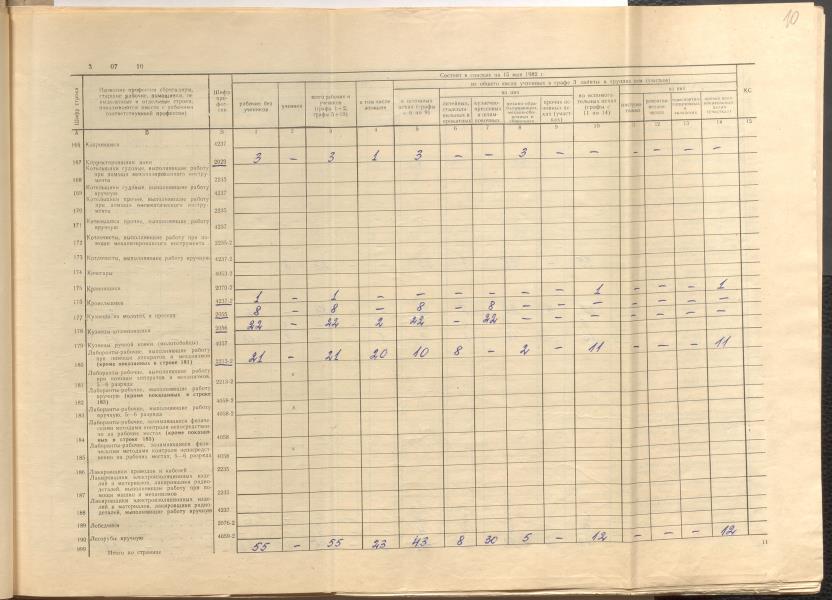 10
3 07 10
Состоит в списках на 15 мая 1982 г.
из общего числа учтенных в графе 3 заняты в группах цехов (участков)
Шифр строки
Название профессии (бригадиры,
старшие рабочие, помощники, не
выделенные в отдельные строки,
показываются вместе с рабочими
соответствующей профессии)
Шифр профессии
рабочие без учеников
ученики
всего рабочих и учеников (графа 1+2; графы 5+10)
в том числе женщин
КС
из них
из них
А Б В 1 2 3 4 5 6 7 8 9 10 11 12 13 14 15
166 Копровщики 4237
167 Корректировщики ванн 2029 3 – 3 1 3 – – 3 – – – – – –
Котельщики судовые, выполняющие работу
при помощи механизированного инстру-
168 мента 2235
Котельщики судовые, выполняющие работу
169 вручную 4237
Котельщики прочие, выполняющие работу
при помощи пневматического инстру-
170 мента 2235
Котельщики прочие, выполняющие работу
171 вручную 4237
Котлочисты, выполняющие работу при по-
172 мощи механизированного инструмента 2235-2
173 Котлочисты, выполняющие работу вручную 4237-2
174 Кочегары
175 Крановщики 2070-2 1 – 1 – – – – – – 1 – – – 1
176 Кровельщики 4237-2 8 – 8 – 8 – 8 – – – – – – –
177 Кузнецы на молотах и прессах 2055 22 – 22 2 22 – 22 – – – – – – –
178 Кузнецы-штамповщики 2056
179 Кузнецы ручной ковки (молотобойцы) 4037
Лаборанты-рабочие, выполняющие работу
при помощи аппаратов и механизмов
180 (кроме показанных в строке 181) 2213-2 21 – 21 20 10 8 – 2 – 11 – – – 11
Лаборанты-рабочие, выполняющие работу
при помощи аппаратов и механизмов,
181 5—6 разряда 2213-2
Лаборанты-рабочие, выполняющие работу
вручную (кроме показанных в строке
182 183) 4058-2
Лаборанты-рабочие, выполняющие работу
183 вручную, 5—6 разряда 4058-2
Лаборанты-рабочие, занимающиеся физиче-
скими методами контроля непосредствен-
но на рабочих местах (кроме показан-
184 ных в строке 185) 4058
Лаборанты-рабочие, занимающиеся физи-
ческими методами контроля непосредст-
185 венно на рабочих местах, 5—6 разряда 4058
186 Лакировщики проводов и кабелей 2235
Лакировщики электроизоляционных изде-
лий и материалов, лакировщики радио-
деталей, выполняющие работу при по-
187 мощи машин и механизмов 2235
Лакировщики электроизоляционных изде-
лий и материалов, лакировщики радио-
188 деталей, выполняющие работу вручную 4237
189 Лебедчики 2076-2
190 Лесорубы вручную 4059-2
Итого по странице 55 – 55 23 43 8 30 5 – 12 – – – 12
11